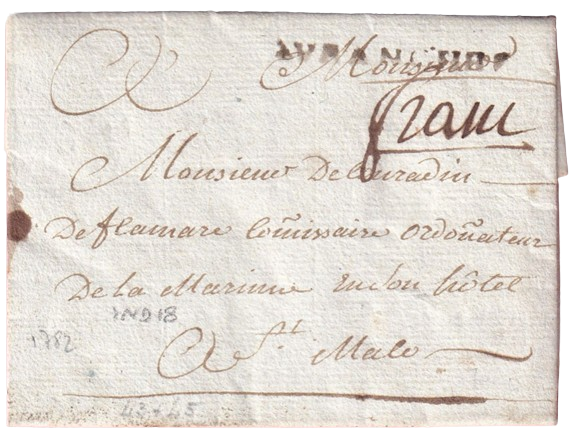 AVRANCHES
A Monsieur
franc
Monsieur De Guradin
De flamare Com̃issaire ordoñateur
De la Marinne en son hôtel
IND18
1782
A St Malo
43 + 45